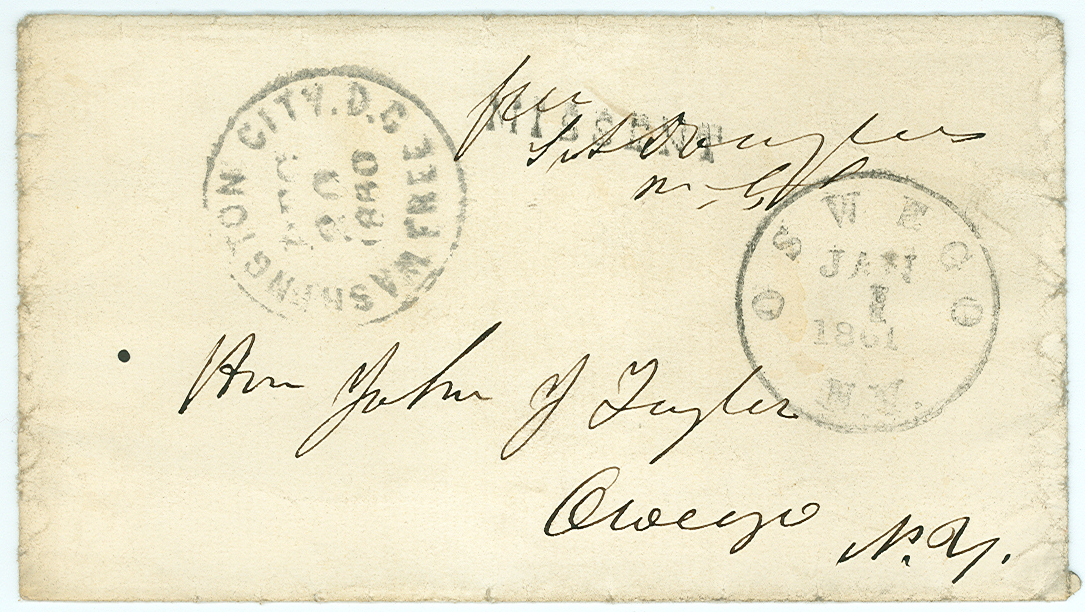 WASHINGTON CITY. D.C
FREE
DEC
20
1860
MISSENT
free
S A Douglas
OSWEGO
JAN
1
1861
N.Y.
Hon John J Taylor
Owego
N.Y.